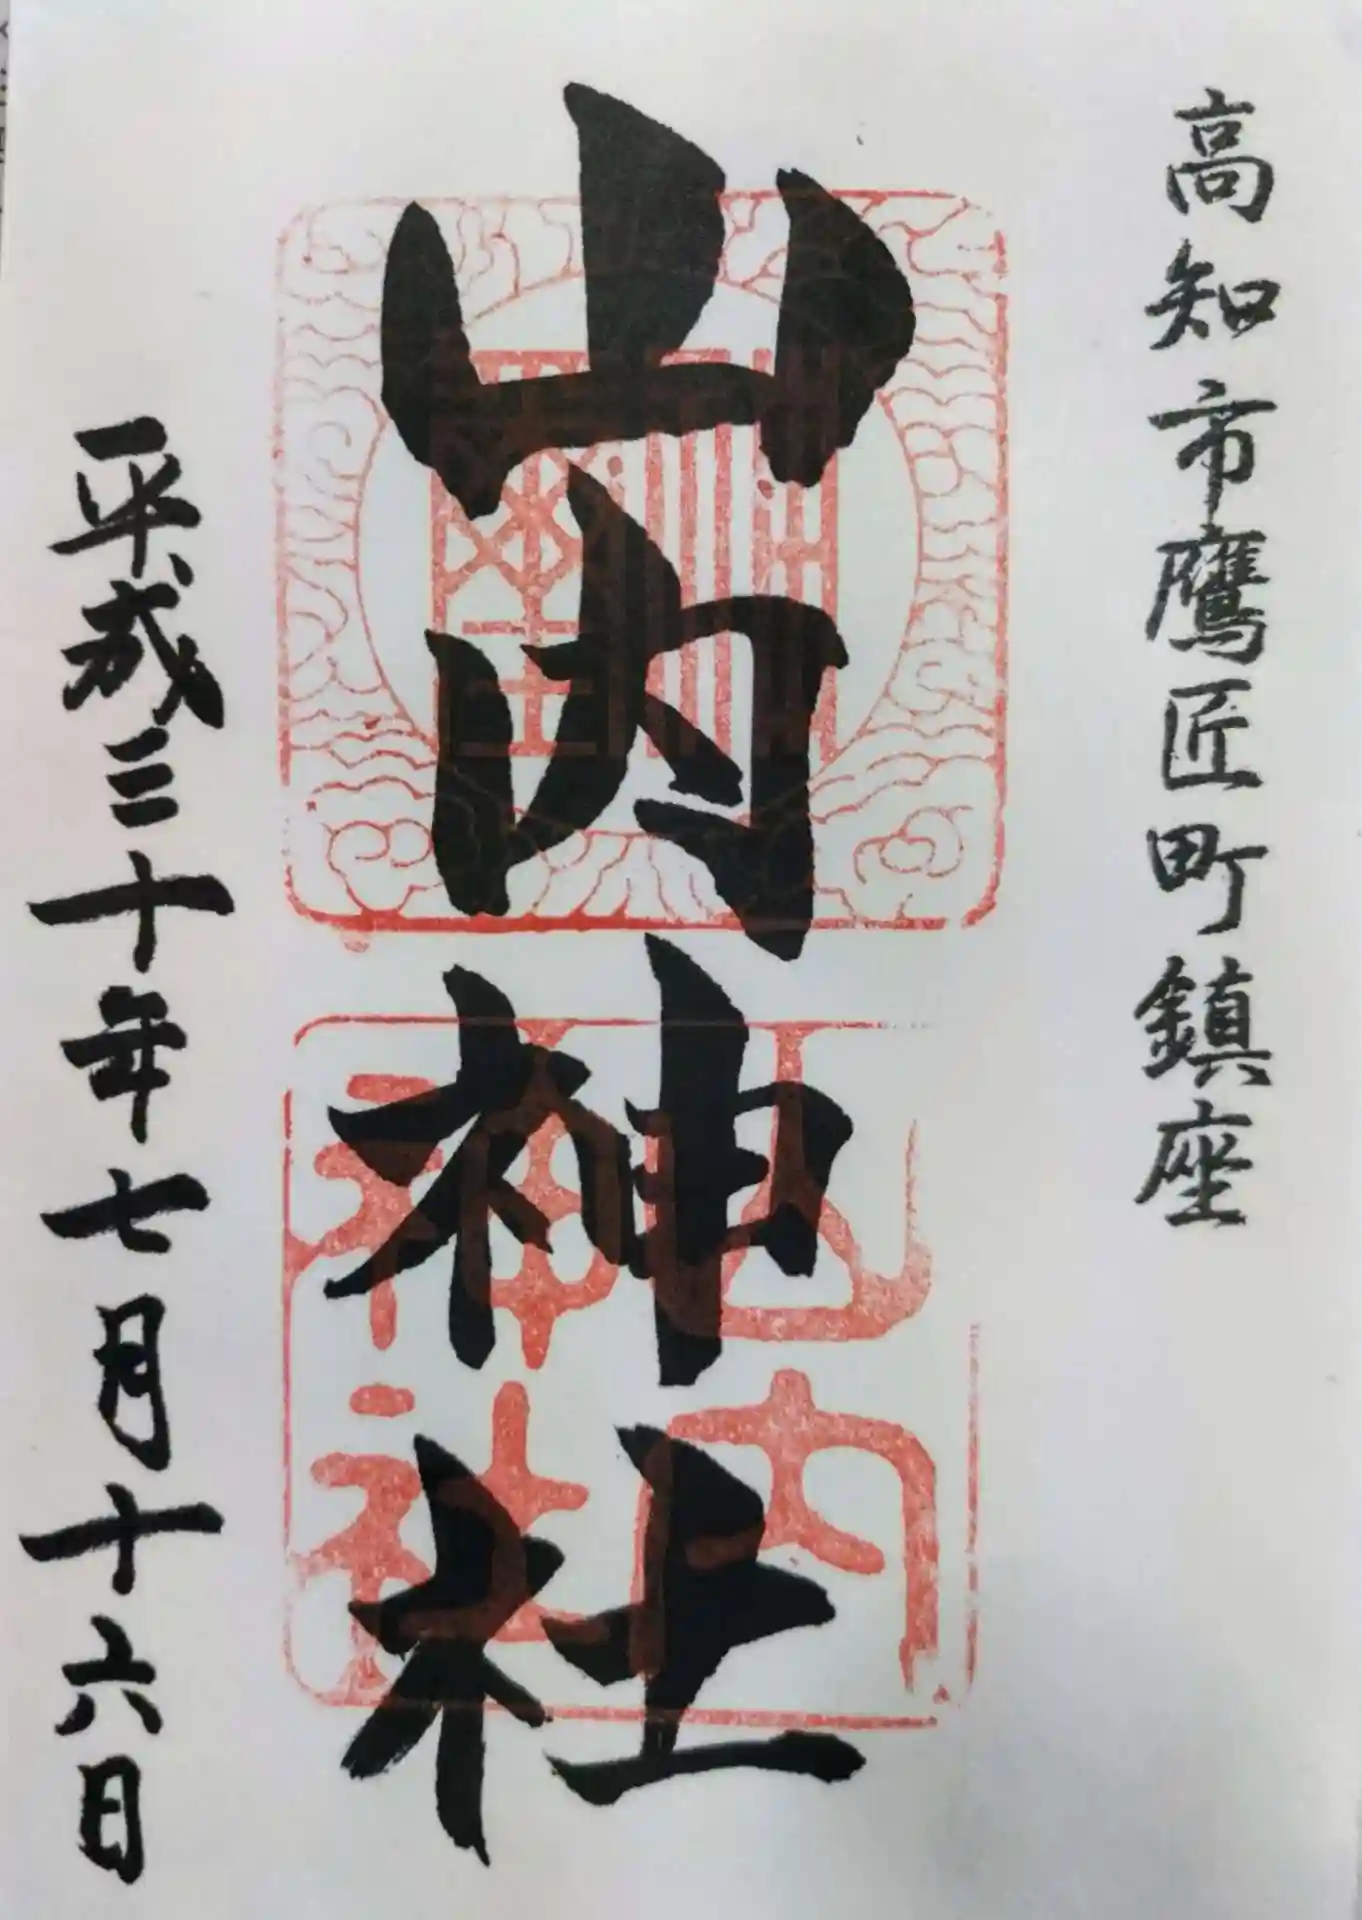 高知市鷹匠町鎮座
山内神社
山内
神社
平成三十年七月十六日